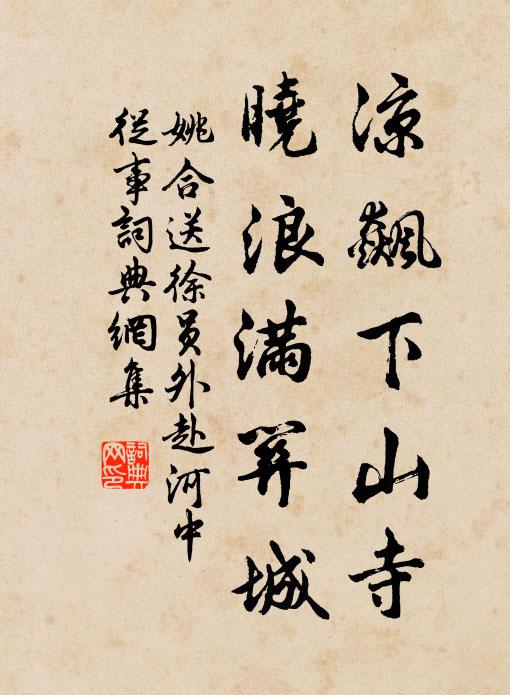 凉飆下山寺
曉浪滿關城
姚合送徐員外赴河中
從事詞典網集
詞典
网印